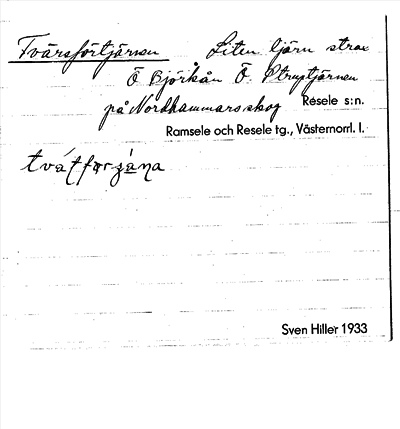 Tvärsförtjärnen Liten tjärn strax
Ö Björkån Ö. Struptjärnen
på Nordhammarsskog Resele s:n.
Ramsele och Resele tg., Västernorrl. l.
Sven Hiller 1933